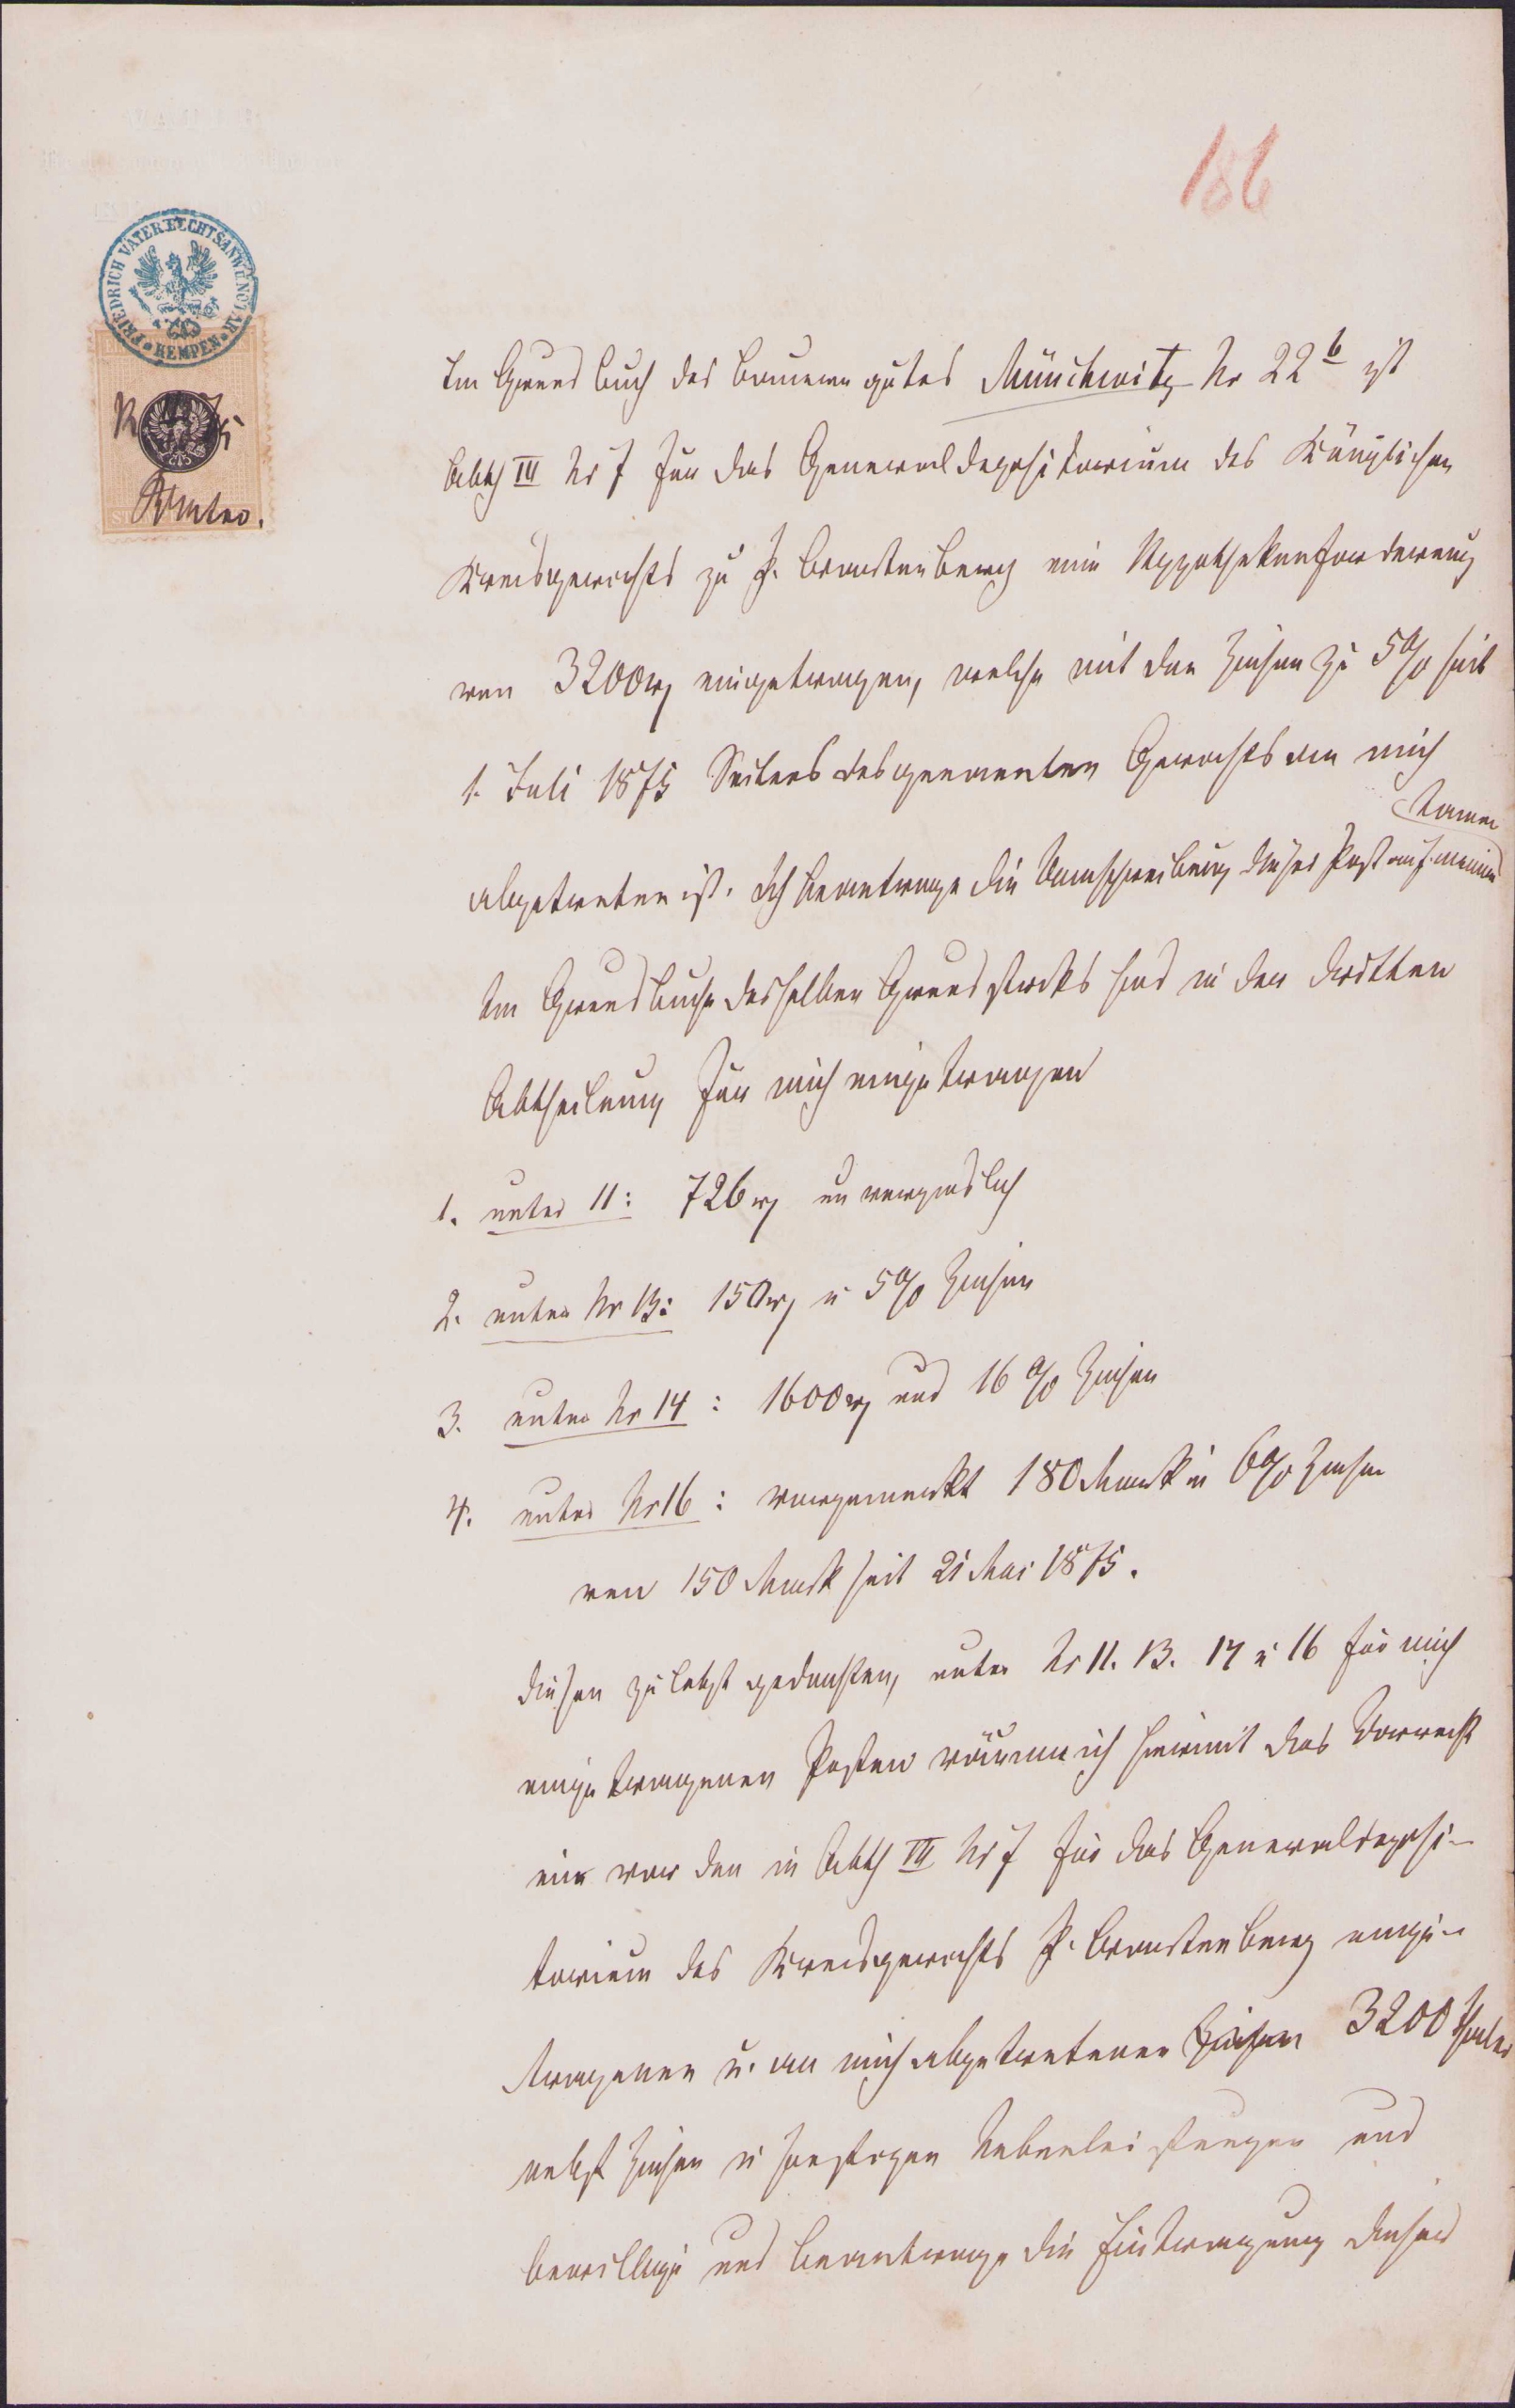 186
FRIEDRICH VATER RECHTSANW. U. NOTAR
KEMPEN
Im Grundbuch des Bauerngutes Münchwitz Nr 22b ist
Abth III Nr 7 für das Generaldepositorium des Königlichen
Kreisgerichts zu P. Wartenberg eine Hypothekenforderung
von 3200 rh eingetragen, welche mit den Zinsen zu 5% seit
1. Juli 1875 Seitens des genannten Gerichts an mich
abgetreten ist. Ich beantrage die Umschreibung dieser Post auf meinen Namen
Im Grundbuche desselben Grundstücks sind in der dritten
Abtheilung für mich eingetragen
1. unter 11: 726 rh unverzinslich
2. unter Nr 13: 150 rh u 5% Zinsen
3. unter Nr 14: 1600 rh und 16% Zinsen
4. unter Nr 16: vorgemerkt 180 Mark u 6% Zinsen
von 150 Mark seit 21 Mai 1875.
Diesen zuletzt gedachten, unter Nr 11. 13. 14 u 16 für mich
eingetragenen Posten räume ich hiermit das Vorrecht
ein vor den in Abth III Nr 7 für das Generaldeposi-
torium des Kreisgerichts P. Wartenberg einge-
tragenen u. an mich abgetretenen 3200 Thaler
nebst Zinsen u sonstigen Nebenleistungen und
bewillige und beantrage die Eintragung dieses